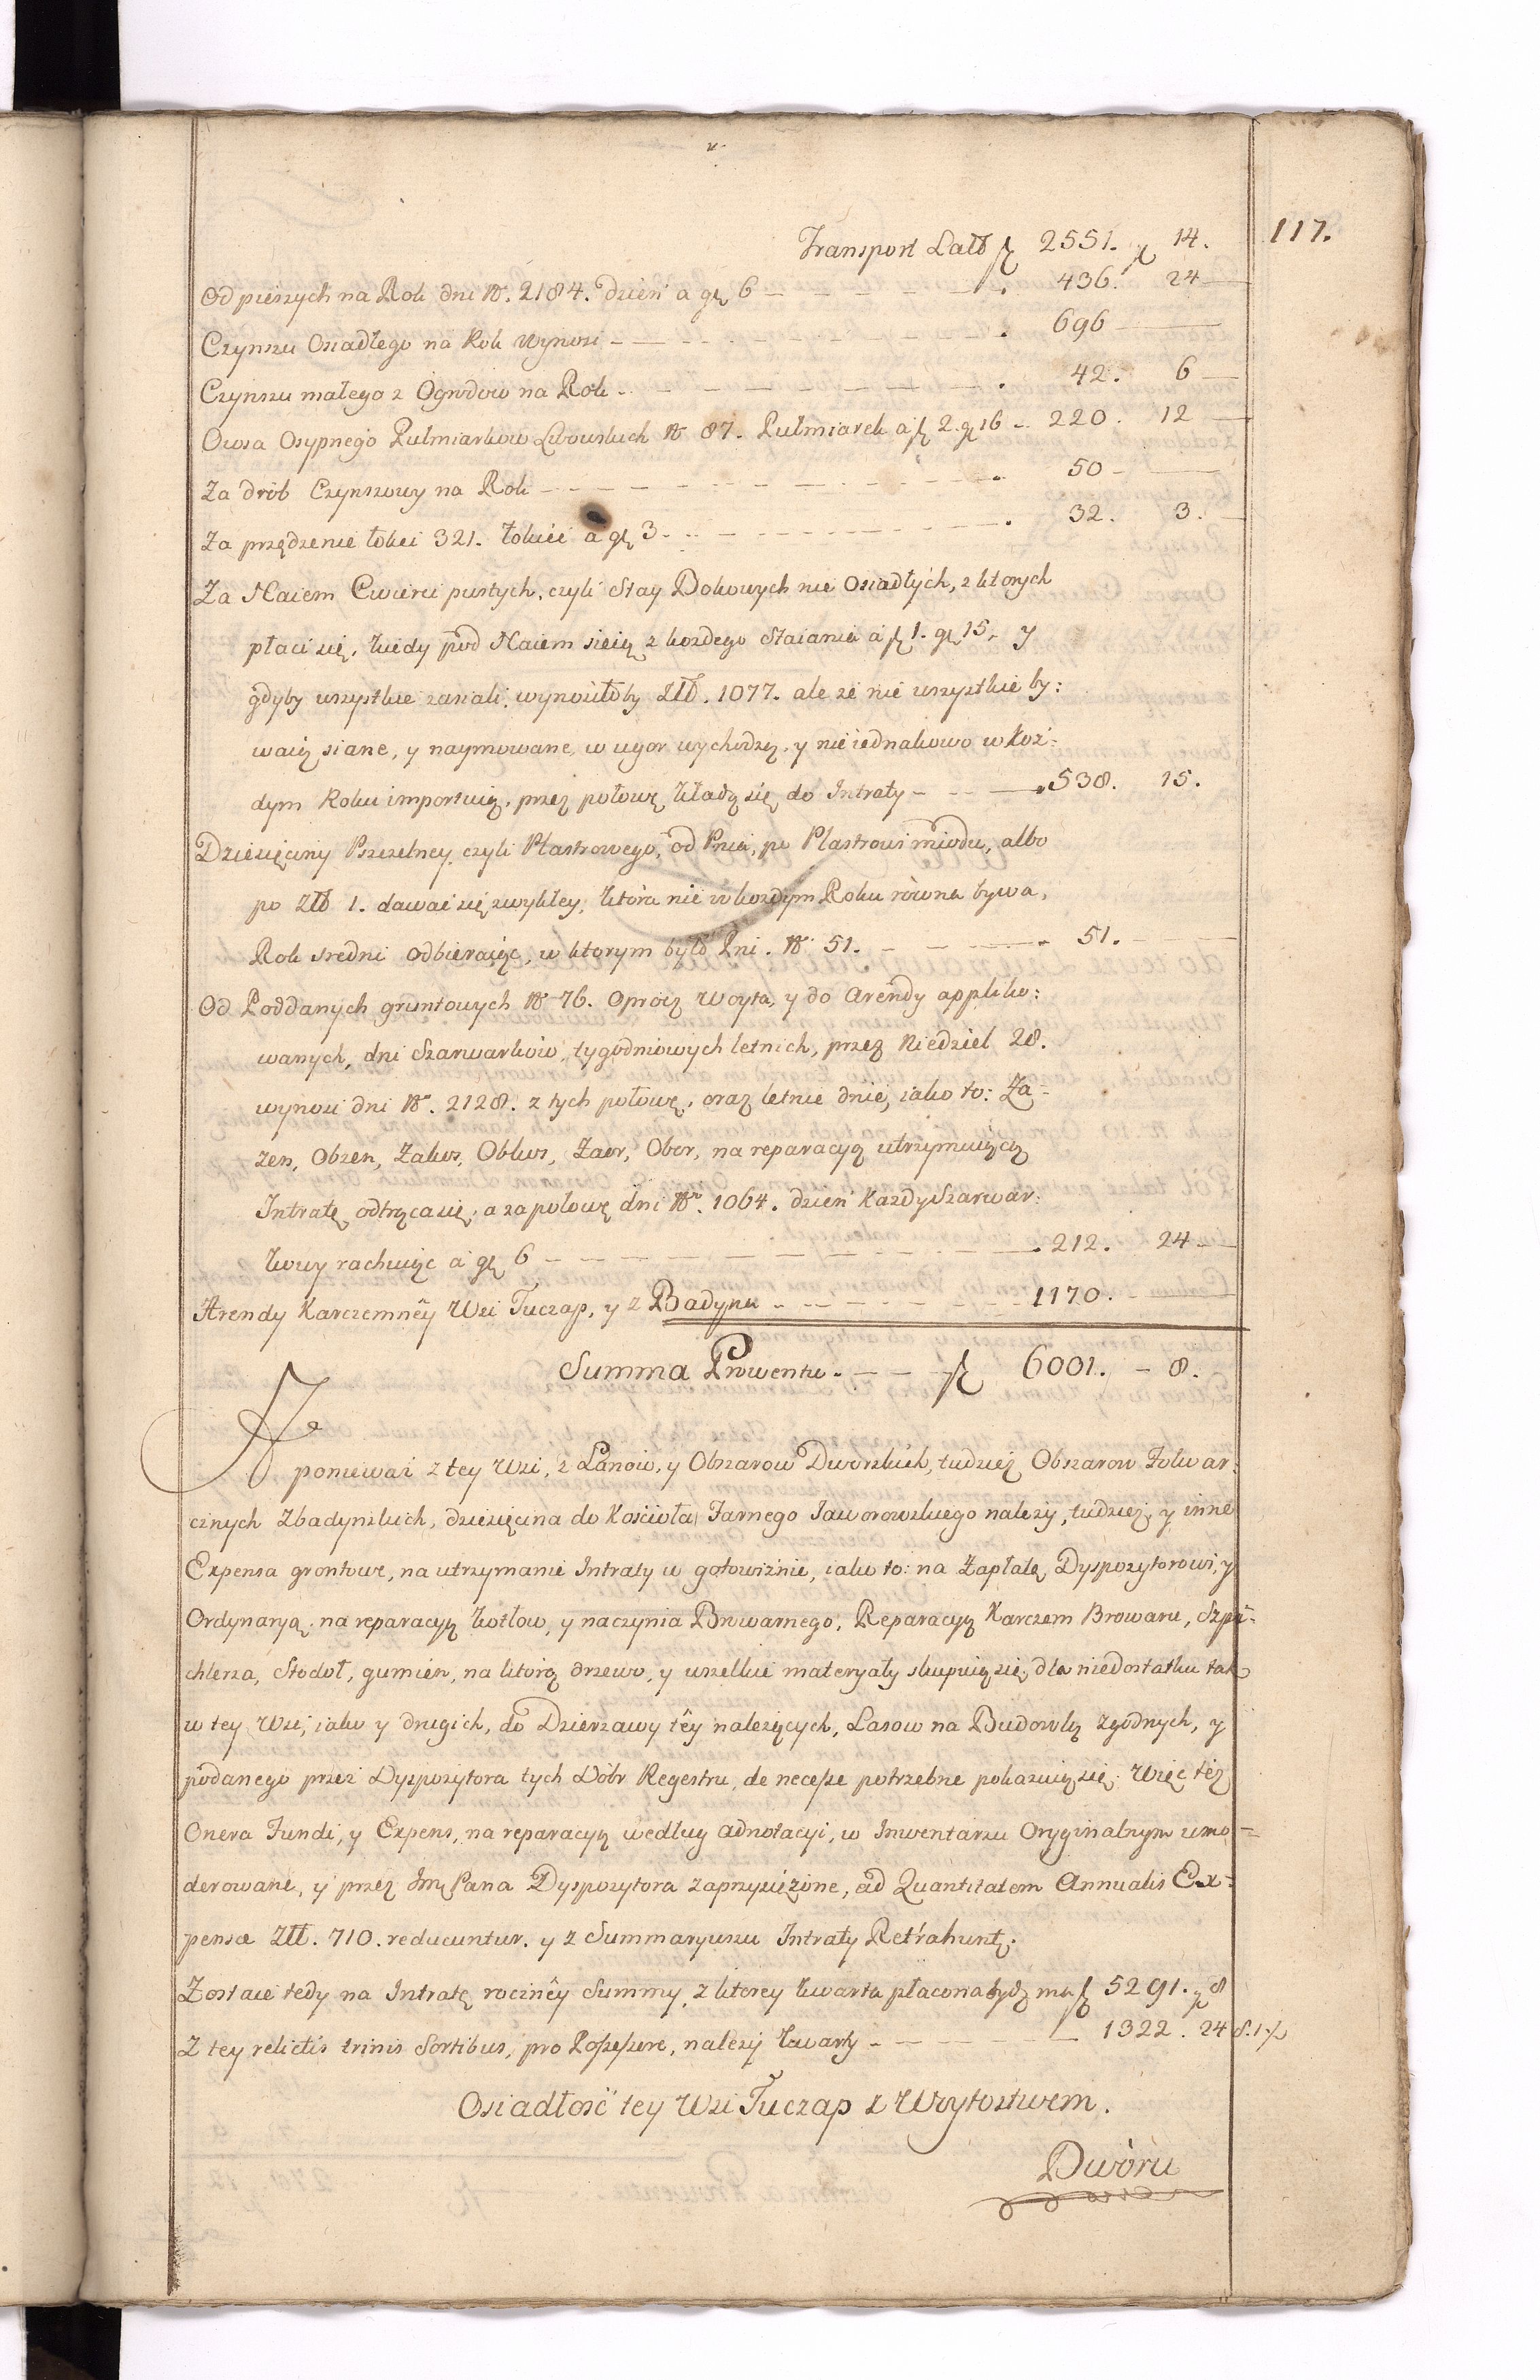 117.
Transport Latt fl 2551. gr 14.
Od pieszych na Rok dni N. 2184. dzień a gr 6 — 436. 24
Czynszu Osiadłego na Rok wynosi — 696
Czynszu małego z Ogrodow na Rok — 42. 6
Owsa Osypnego Pułmiarkow Lwowskich N 87. Pułmiarek a fl 2. gr 16 — 220. 12
Za drób Czynszowy na Rok — 50
Za przędzenie łokci 321. łokieć a gr 3 — 32. 3.
Za Naiem Cwierci pustych, czyli Stay Dołowych nie Osiadłych, z ktorych
płaci się, kiedy pod Naiem sieią z kozdego Staiania a fl 1. gr 15, y
gdyby wszystkie zasiali, wynosiłoby Złł. 1077. ale ze nie wszystkie by:
waią siane, y naymowane, w ugor wychodzą, y nie iednakowo w koz:
dym Roku importuią, przez połowę kładą się do Intraty — 538. 15.
Dziesięciny Pszczelney czyli Plastrowego, od Pnia, po Plastrowi miodu, albo
po Złł 1. dawać się zwykłey, która nie w kozdym Roku rowna bywa,
Rok sredni odbieraiąc, w ktorym było Pni. N 51. — 51.
Od Poddanych gruntowych N 76. Oprócz Woyta, y do Arendy appliko:
wanych, dni Szarwarków, tygodniowych letnich, przez Niedziel 28.
wynosi dni N. 2128. z tych połowę, oraz letnie dnie, iako to: Za-
zen, Obzen, Zakos, Obkos, Zaor, Obor, na reparacyą utrzymuiącą
Intratę odtrąca się, a za połowę dni N. 1064. dzień Kazdy Szarwar:
kowy rachuiąc a gr 6 — 212. 24
Arendy Karczemney Wsi Tuczap, y z Badynu — 1170.
Summa Prowentu — fl 6001. — 8.
A
poniewaz z tey Wsi, z Łanow, y Obszarow Dworskich, tudziez Obszarow Folwar:
cznych Zbadynskich, dziesięcina do Kościoła Farnego Jaworowskiego nalezy, tudziez y inne
Expensa grontowe, na utrzymanie Intraty w gotowiźnie, iako to: na Zapłatę Dyspozytorowi, y
Ordynaryą, na reparacyą kotłow, y naczynia Browarnego, Reparacyą Karczem Browaru, Szpi-
chlerza, Stodoł, gumien, na którą drzewo, y wszelkie materyały skupuią się, dla niedostatku tak
w tey Wsi, iako y drugich, do Dzierzawy tey nalezących, Lasow na Budowlą zgodnych, y
podanego przez Dyspozytora tych Dóbr Regestru, de necesse potrzebne pokazuią się: Więc też
Onera Fundi, y Expens, na reparacyą według adnotacyi, w Inwentarzu Oryginalnym umo-
derowane, y przez Jmć Pana Dyspozytora zaprzysiężone, ad Quantitatem Annualis Ex-
pensæ Złł. 710. reducuntur. y z Summaryuszu Intraty Retrahunt:
Zostaie tedy na Intratę roczney Summy, z ktorey kwarta płacona bydz ma fl 5291. gr 8
Z tey relictis trinis Sortibus, pro Possessore, nalezy kwarty — 1322. 24 d. 1½
Osiadłość tey Wsi Tuczap z Woytostwem.
Dwóru